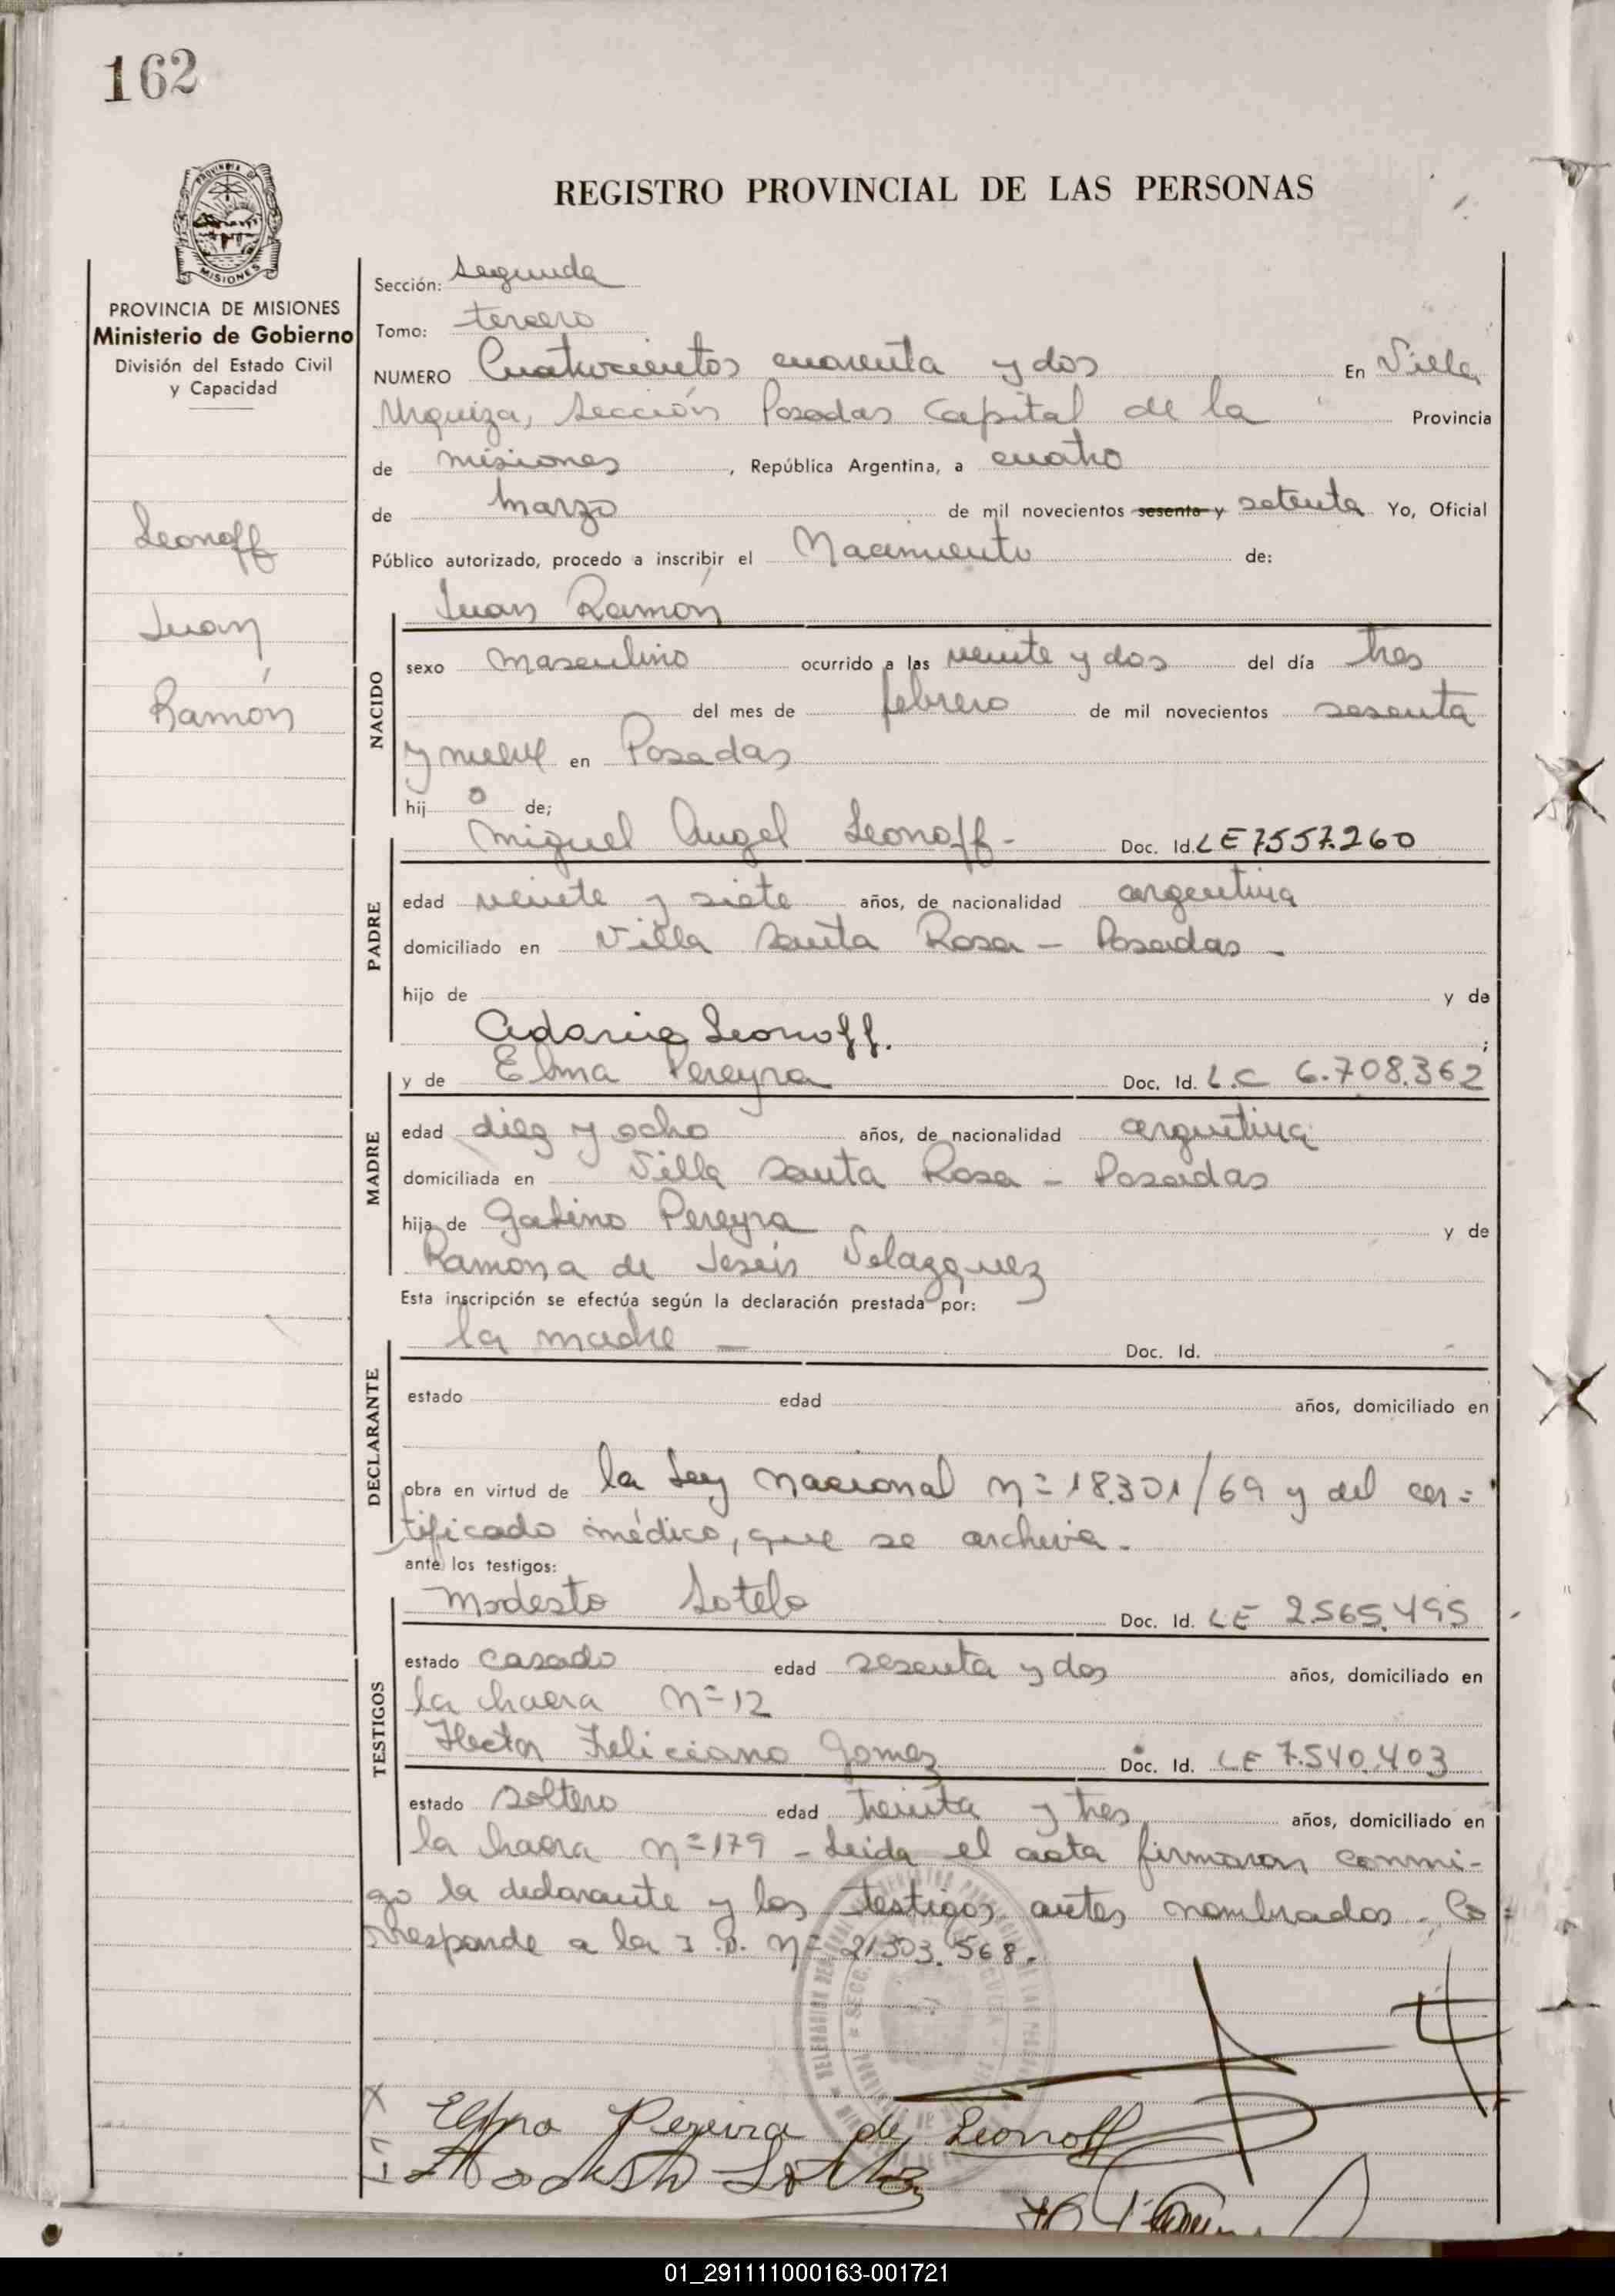 162
REGISTRO PROVINCIAL DE LAS PERSONAS
PROVINCIA DE MISIONES
Ministerio de Gobierno
División del Estado Civil
y Capacidad
Leonoff
Juan
Ramón
Sección: segunda
Tomo: tercero
NUMERO Cuatrocientos cuarenta y dos En Villa
Urquiza, Sección Posadas Capital de la Provincia
de misiones, República Argentina, a cuatro
de marzo de mil novecientos sesenta y setenta Yo, Oficial
Público autorizado, procedo a inscribir el Nacimiento de:
Juan Ramón
NACIDO
sexo masculino ocurrido a las veinte y dos del día tres
del mes de febrero de mil novecientos sesenta
y nueve en Posadas
hij o de;
Miguel Angel Leonoff - Doc. Id. LE 7.557.260
PADRE
edad veinte y siete años, de nacionalidad argentina
domiciliado en Villa Santa Rosa - Posadas -
hijo de y de
Leonoff. ;
y de Elma Pereyra Doc. Id. L.C 6.708.362
MADRE
edad diez y ocho años, de nacionalidad argentina
domiciliada en Villa Santa Rosa - Posadas
hija de Gabino Pereyra y de
Ramona de Jesús Velazquez
Esta inscripción se efectúa según la declaración prestada por:
la madre - Doc. Id.
DECLARANTE
estado edad años, domiciliado en
obra en virtud de la Ley Nacional n= 18.301/69 y del cer=
tificado médico, que se archiva.
ante los testigos:
Modesto Sotelo Doc. Id. LE 2.565.495
TESTIGOS
estado casado edad sesenta y dos años, domiciliado en
la chacra n= 12
Hector Feliciano Gomez Doc. Id. LE 7.540.403
estado soltero edad treinta y tres años, domiciliado en
la chacra n= 179 - Leida el acta firmaron conmi-
go la declarante y los testigos antes nombrados. Co=
rresponde a la I.D. n= 21.303.568.
Elma Pereira de Leonoff
Modesto Sotelo
01_291111000163-001721